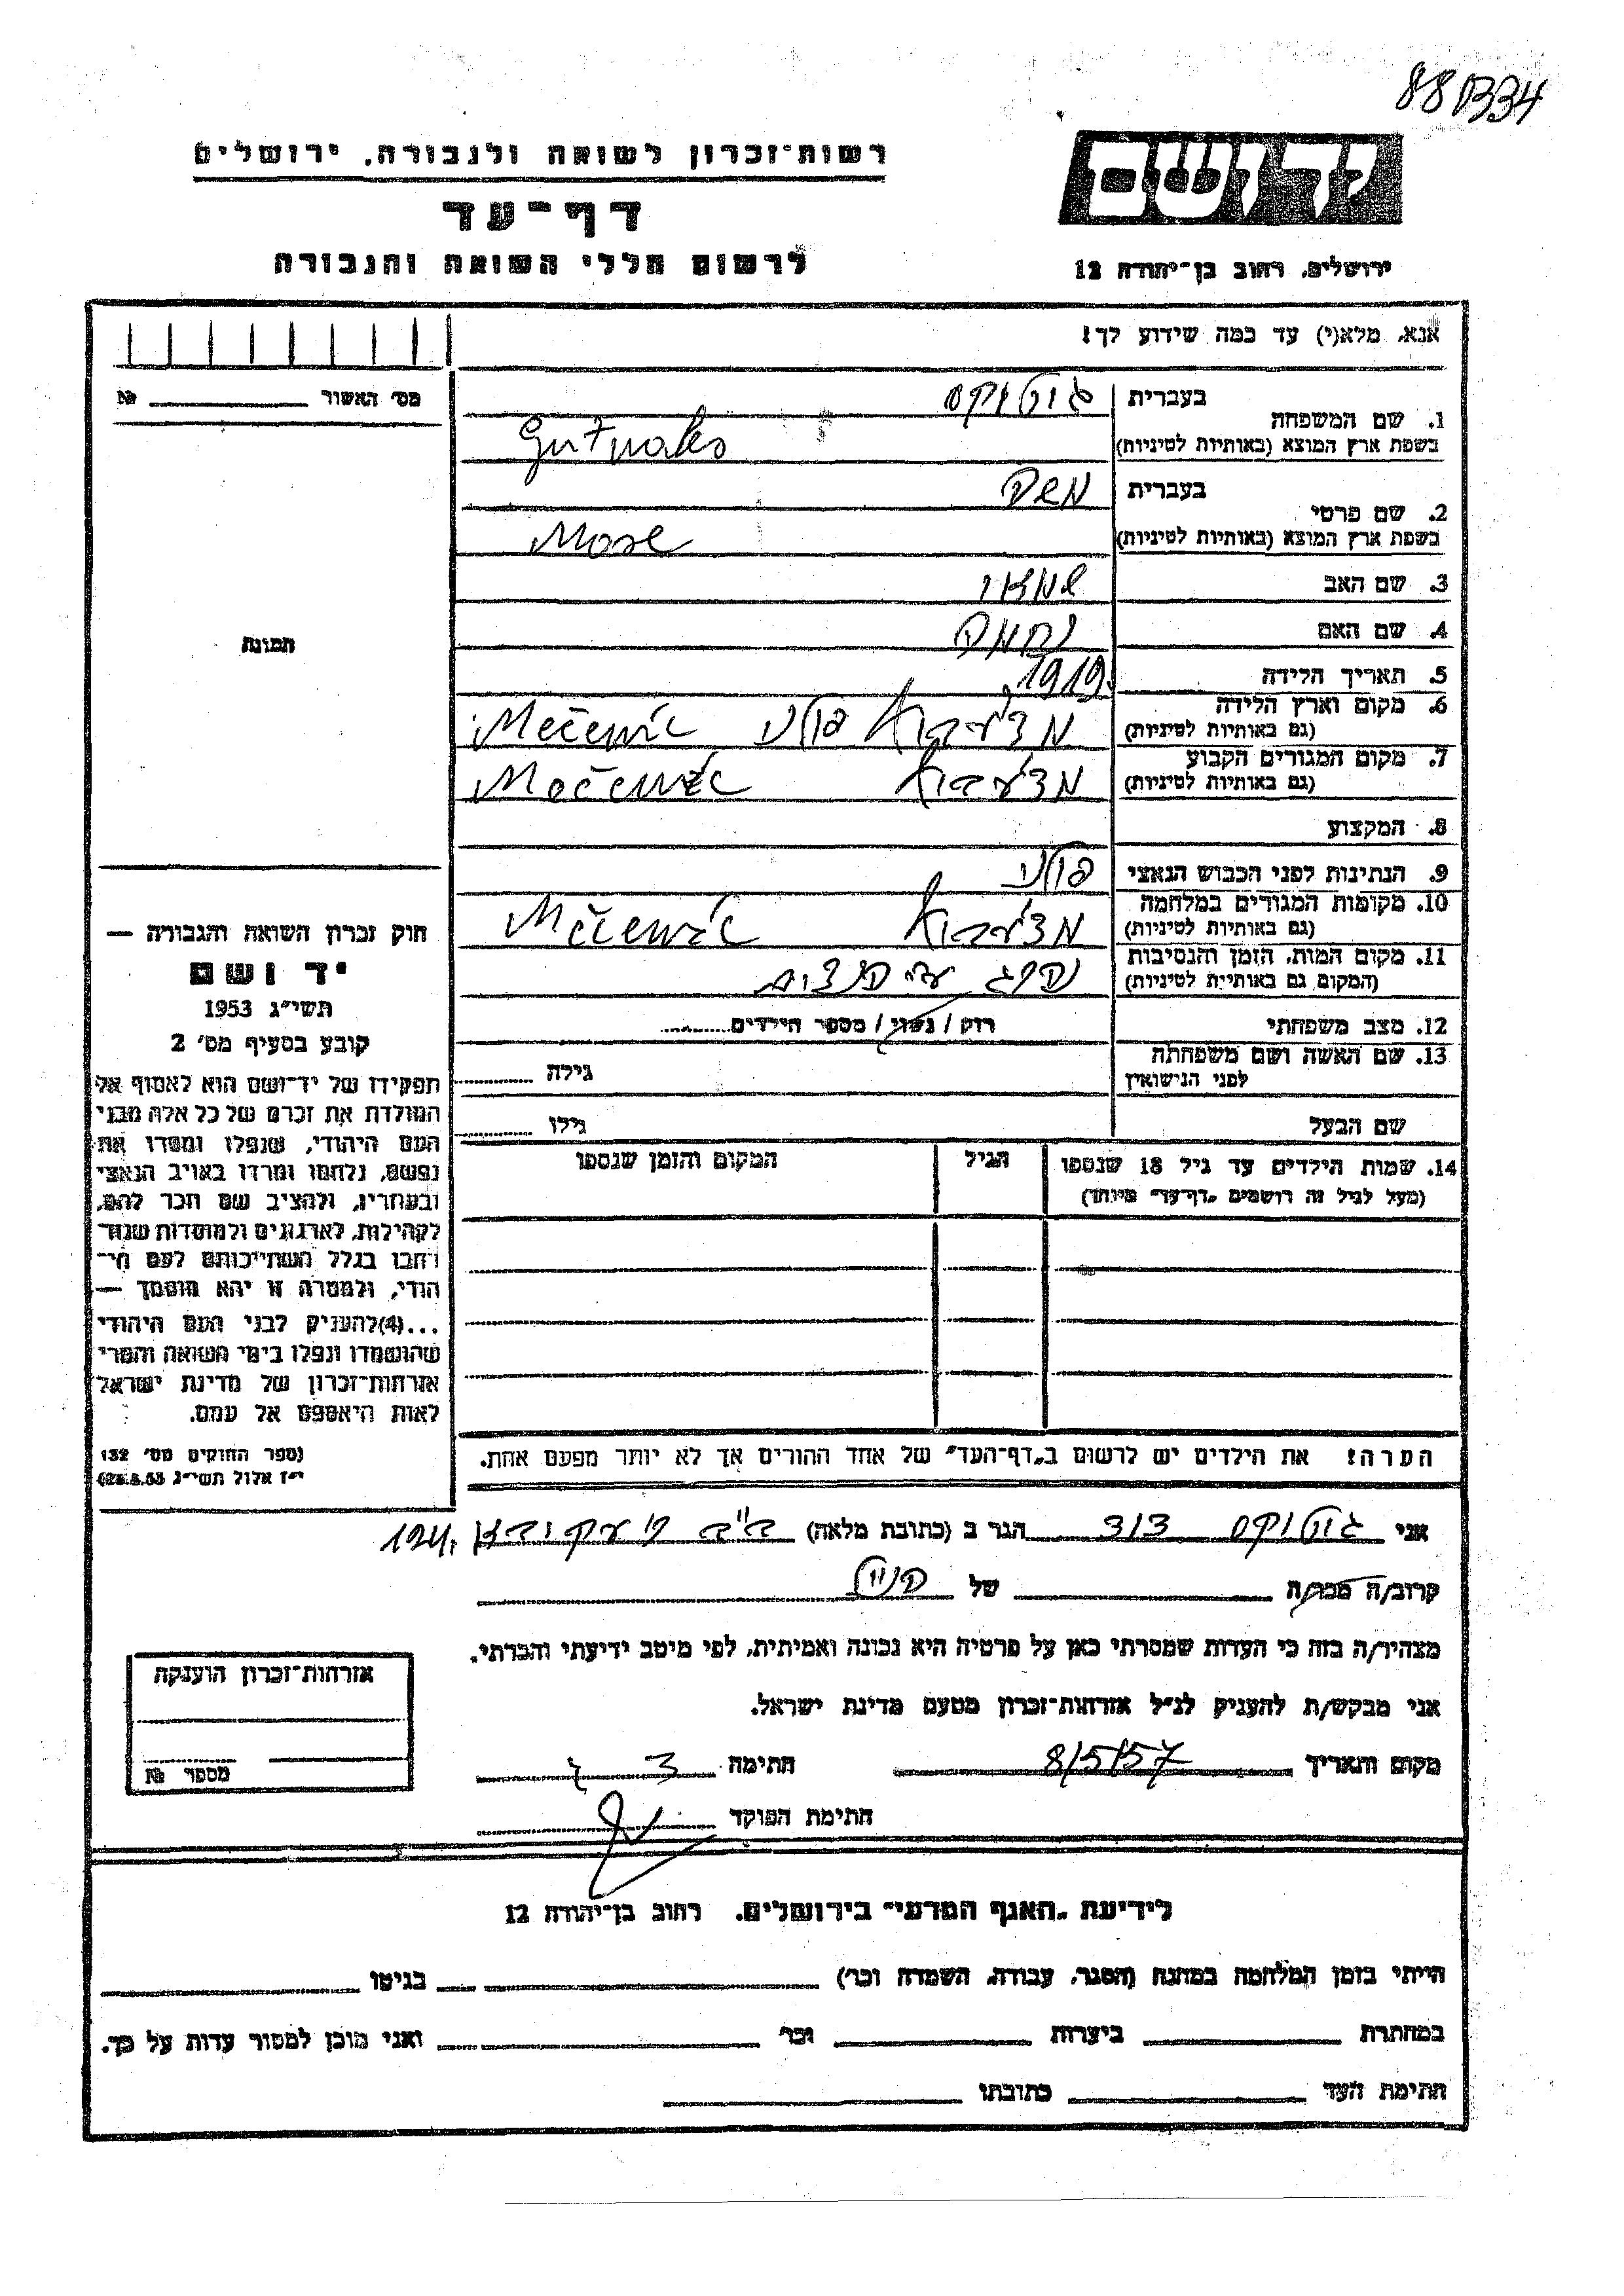 88 B34
רשות־זכרון לשואה ולגבורה, ירושלים
יד ושם
דף־עד
לרשום חללי השואה והגבורה
ירושלים, רחוב בן־יהודה 12
אנא, מלא(י) עד כמה שידוע לך!
מס׳ האשור № 
1. שם המשפחה
בעברית
בשפת ארץ המוצא (באותיות לטיניות)
Gutwaks
2. שם פרטי
בעברית משה
בשפת ארץ המוצא (באותיות לטיניות)
Mose
3. שם האב
4. שם האם נחמה
5. תאריך הלידה 1919.
6. מקום וארץ הלידה
(גם באותיות לטיניות) פולני Mečewić
7. מקום המגורים הקבוע
(גם באותיות לטיניות) Mečewić
8. המקצוע
9. הנתינות לפני הכבוש הנאצי פולני
10. מקומות המגורים במלחמה
(גם באותיות לטיניות) Mečewić
11. מקום המות, הזמן והנסיבות
(המקום גם באותיות לטיניות) נהרג ע״י הנצים
12. מצב משפחתי רוק / נשוי / מספר הילדים
13. שם האשה ושם משפחתה
לפני הנישואין גילה
שם הבעל גילו
14. שמות הילדים עד גיל 18 שנספו
(מעל לגיל זה רושמים „דף־עד״ מיוחד)
הגיל
המקום והזמן שנספו
הערה! את הילדים יש לרשום ב„דף־העד״ של אחד ההורים אך לא יותר מפעם אחת.
תמונה
חוק זכרון השואה והגבורה —
יד ושם
תשי״ג 1953
קובע בסעיף מס׳ 2
תפקידו של יד־ושם הוא לאסוף אל
המולדת את זכרם של כל אלה מבני
העם היהודי, שנפלו ומסרו את
נפשם, נלחמו ומרדו באויב הנאצי
ובעוזריו, ולהציב שם וזכר להם,
לקהילות, לארגונים ולמוסדות שנח־
רבו בגלל השתייכותם לעם הי־
הודי, ולמטרה זו יהא מוסמך —
...(4)להעניק לבני העם היהודי
שהושמדו ונפלו בימי השואה והמרי
אזרחות־זכרון של מדינת ישראל
לאות היאספם אל עמם.
(ספר החוקים מס׳ 132
י״ז אלול תשי״ג 28.8.53)
אני גוטוקס דוד הגר ב (כתובת מלאה) 194.
קרוב/ה מכר/ה של הנ״ל
מצהיר/ה בזה כי העדות שמסרתי כאן על פרטיה היא נכונה ואמיתית, לפי מיטב ידיעתי והכרתי.
אני מבקש/ת להעניק לנ״ל אזרחות־זכרון מטעם מדינת ישראל.
מקום ותאריך 8/5/57 חתימה
חתימת הפוקד
אזרחות־זכרון הוענקה
מספר №
לידיעת „האגף המדעי״ בירושלים, רחוב בן־יהודה 12
הייתי בזמן המלחמה במחנה (הסגר, עבודה, השמדה וכר׳) בגיטו
במחתרת ביערות וכר׳ ואני מוכן למסור עדות על כך.
חתימת העד כתובתו